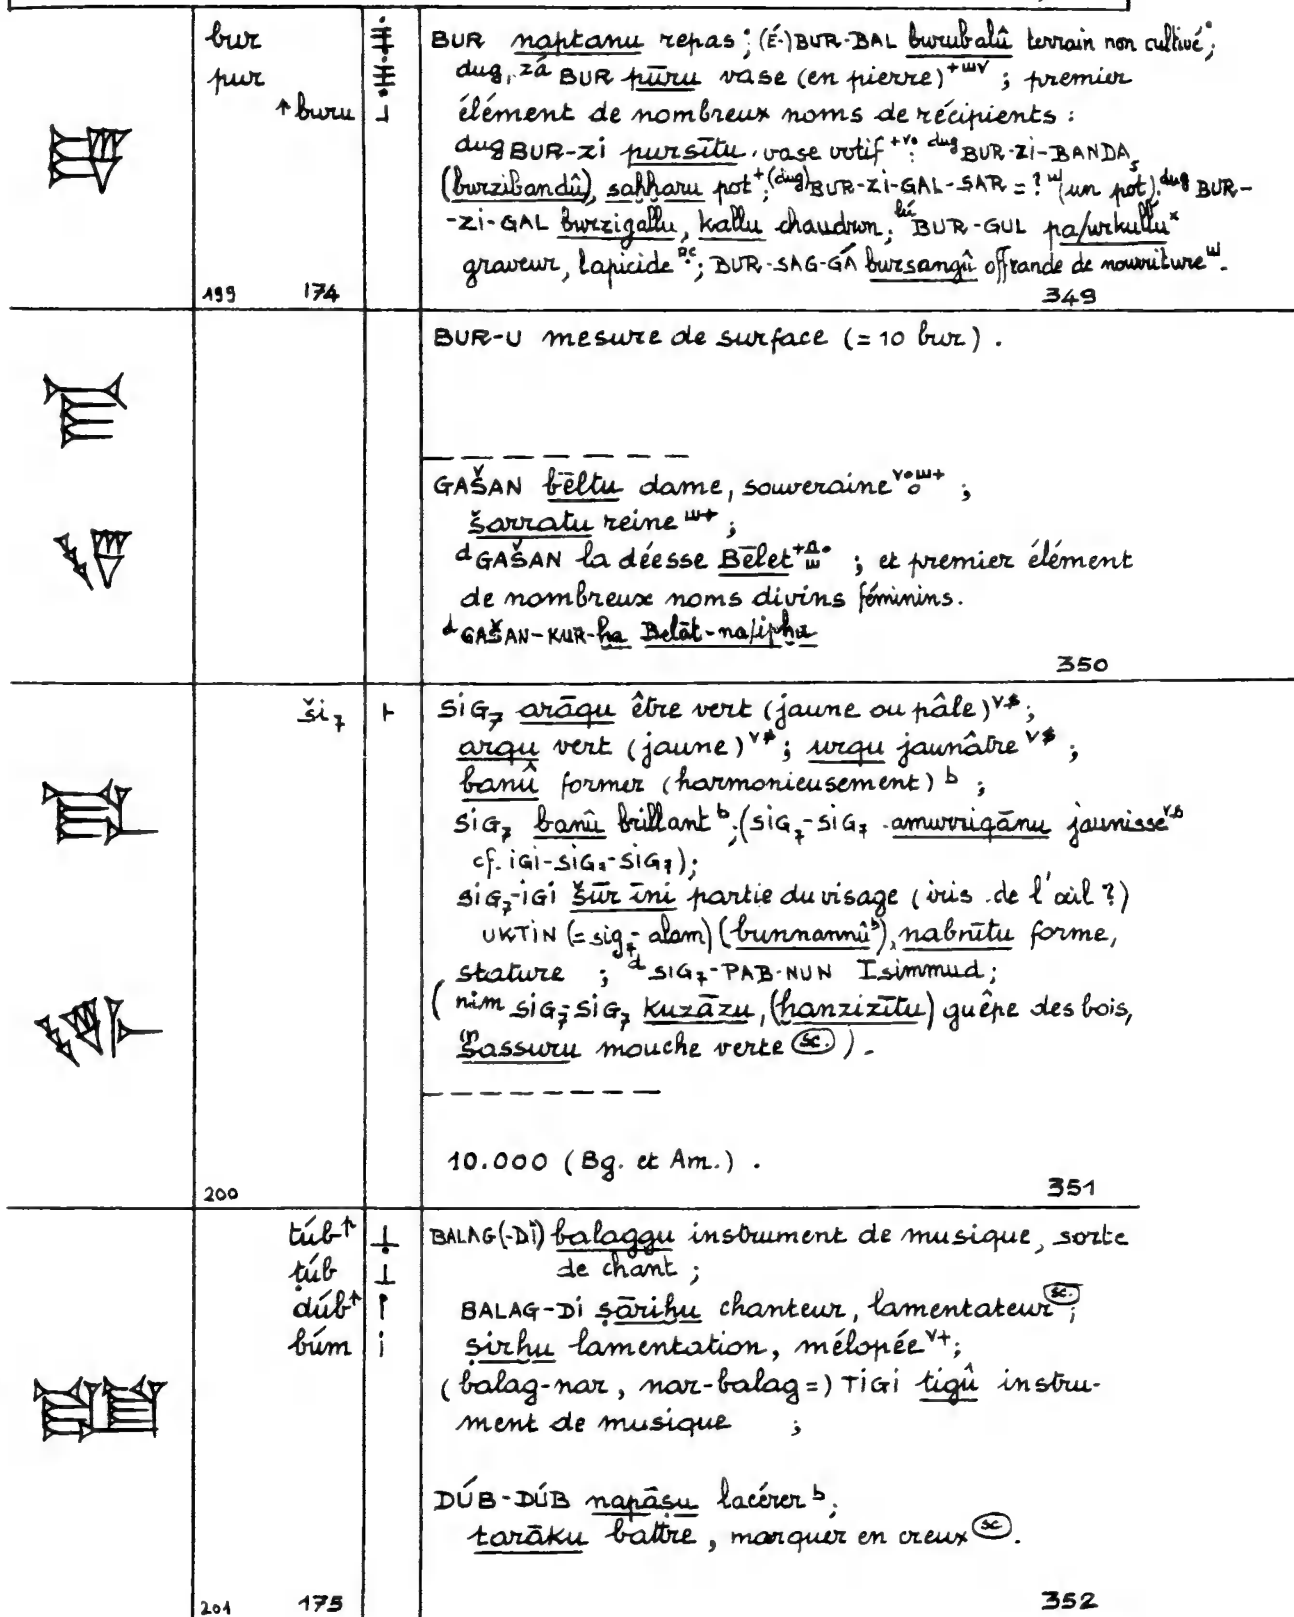 bur BUR naptanu repas ; (É-)BUR-BAL burubalû terrain non cultivé ;
pur dug, zá BUR pūru vase (en pierre) ; premier
↑ buru élément de nombreux noms de récipients :
dug BUR-ZI pursītu vase votif ; dug BUR-ZI-BANDA
(burzibandû), saḫḫaru pot ; (dug) BUR-ZI-GAL-SAR = ? (un pot) ; dug BUR-
-ZI-GAL burzigallu, kallu chaudron ; lú BUR-GUL pa/urkullu
graveur, lapicide ; BUR-SAG-GÁ bursangû offrande de nourriture .
199 174 349
BUR-U mesure de surface (= 10 bur) .
GAŠAN bēltu dame, souveraine ;
šarratu reine ;
d GAŠAN la déesse Bēlet ; et premier élément
de nombreux noms divins féminins.
d GAŠAN-KUR-ḫa Belāt-na/ipḫa
350
ši₇ SIG₇ arāqu être vert (jaune ou pâle) ;
arqu vert (jaune) ; urqu jaunâtre ;
banû former (harmonieusement) b ;
SIG₇ banû brillant b ; (SIG₇-SIG₇ amurriqānu jaunisse
cf. IGI-SIG₇-SIG₇) ;
SIG₇-IGI šūr īni partie du visage (iris de l'œil ?)
UKTIN (= sig₇-alam) (bunnannû b), nabnītu forme,
stature ; d SIG₇-PAB-NUN Isimmud ;
( nim SIG₇-SIG₇ kuzāzu, (ḫanzizītu) guêpe des bois,
šassuru mouche verte (sc.) ) .
10.000 (Bg. et Am.) .
200 351
túb↑ BALAG(-DÌ) balaggu instrument de musique, sorte
ṭúb de chant ;
dúb↑ BALAG-DÌ ṣāriḫu chanteur, lamentateur (sc.) ;
búm ṣirḫu lamentation, mélopée v+ ;
(balag-nar, nar-balag =) TIGI tigû instru-
ment de musique ;
DÚB-DÚB napāṣu lacérer b ;
tarāku battre, marquer en creux (sc) .
201 175 352